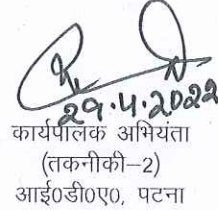 29.4.2022
कार्यपालक अभियंता
(तकनीकी–2)
आई0डी0ए0, पटना